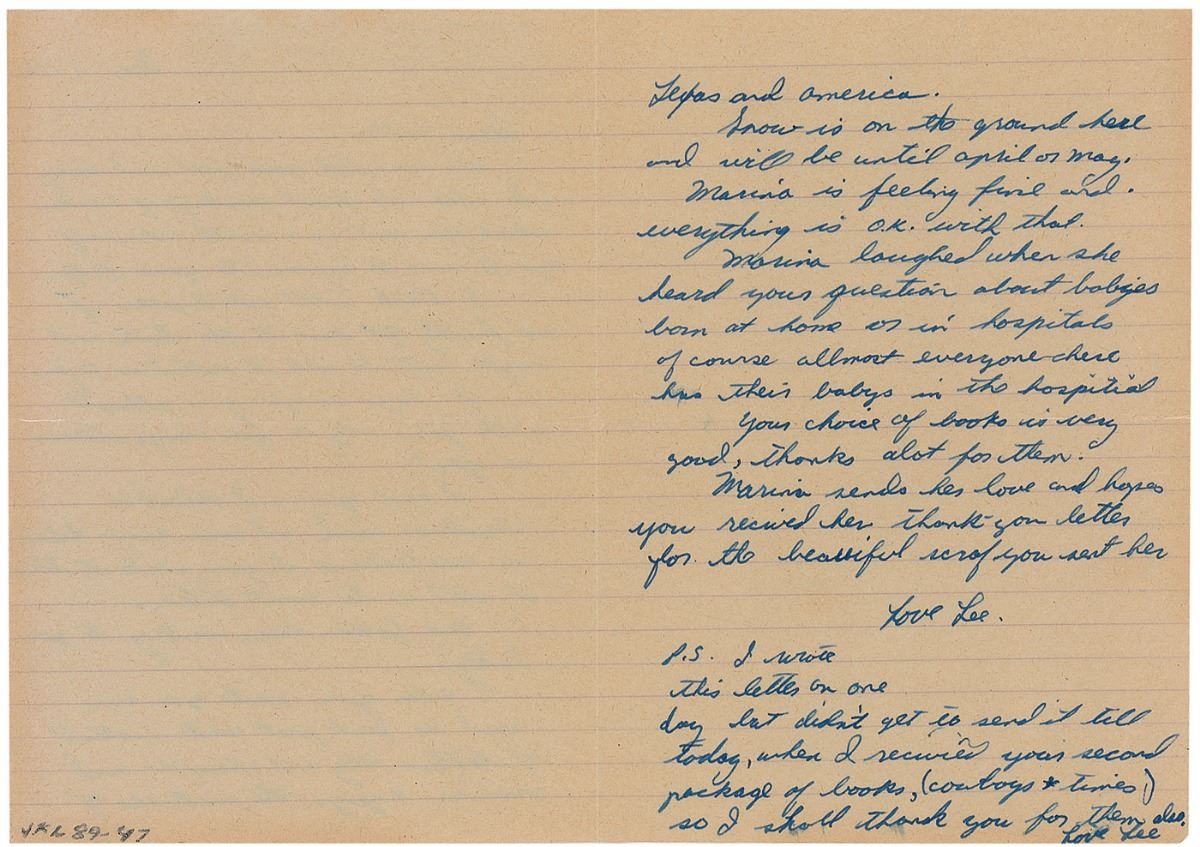 Texas and america.
Snow is on the ground here
and will be until april or may.
Marina is feeling fine and.
everything is o.k. with that.
Marina laughed when she
heard your question about babies
born at home or in hospitals
of course allmost everyone here
has their babys in the hospitial
Your choice of books is very
good, thanks alot for them.
Marina sends her love and hopes
you recived her thank-you letter
for the beautiful scraf you sent her
Love Lee.
P.S. I wrote
this letter on one
day but didn't get to send it till
today, when I recivied your second
package of books, (cowboys * times)
so I shall thank you for them also.
Love Lee
JKL 89-47